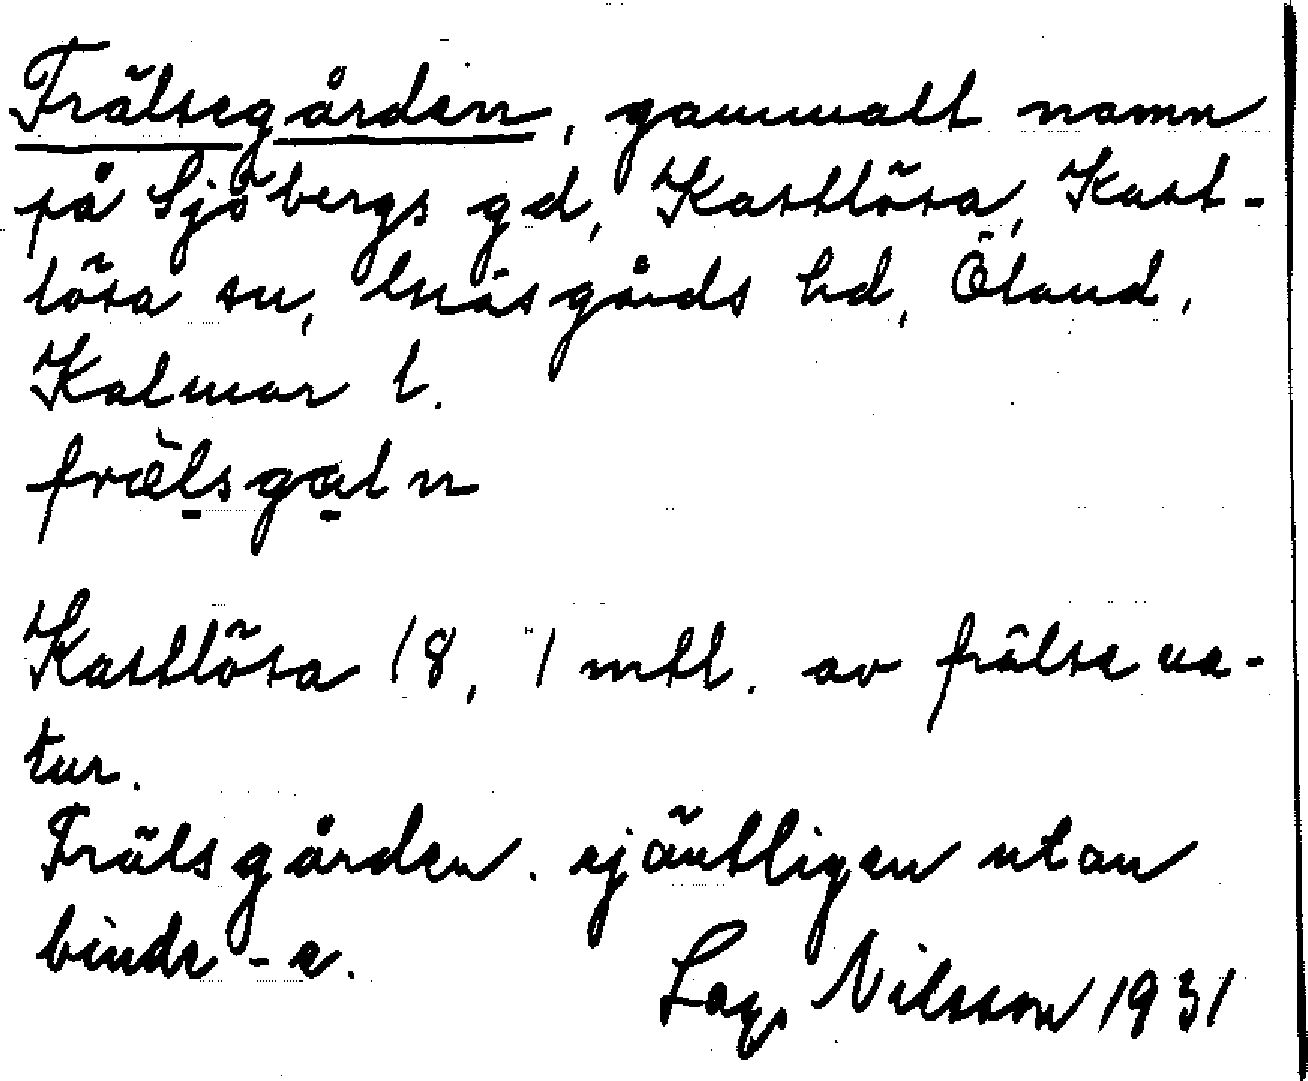 Frälsegården, gammalt namn
på Sjöbergs gd, Kastlösa, Kast-
lösa sn, Smås gårds hd, Öland,
Kalmar l.
frälsgaln
Kastlösa 18, 1 mtl. av frälse na-
tur.
Frälsgården. ejäntligen utan
binde - e.
Lag. Nilsson 1931